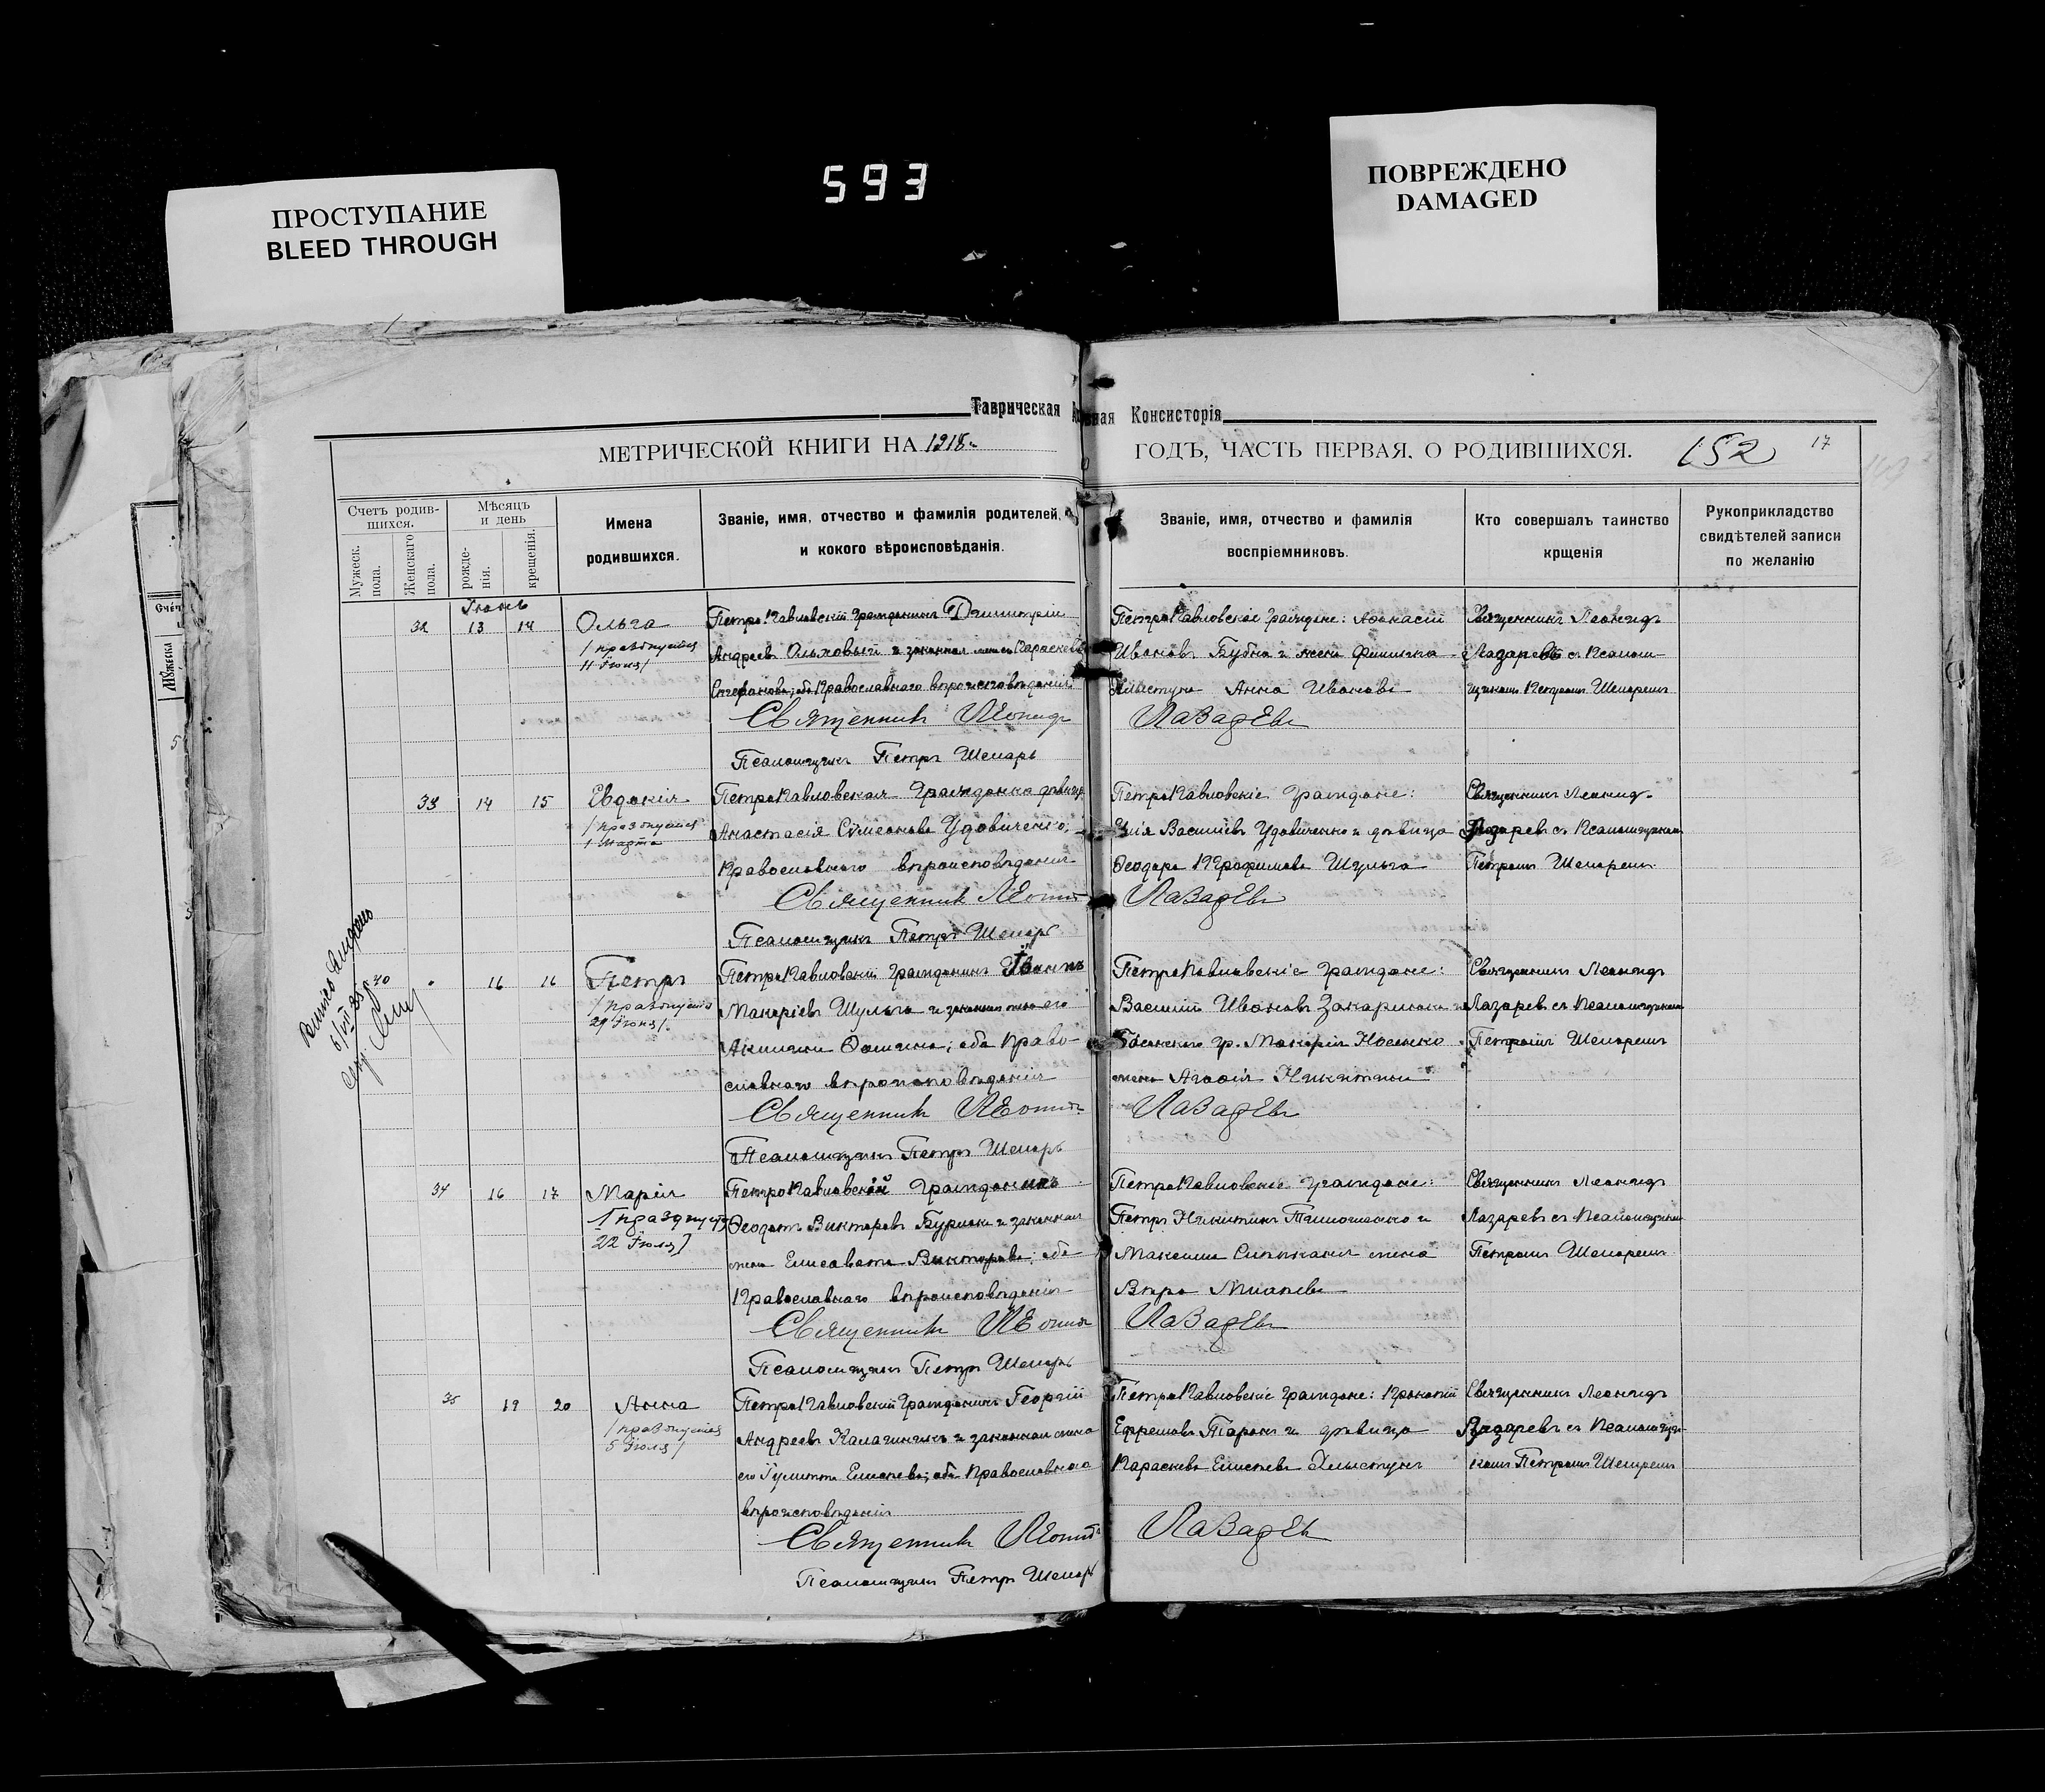 593
ПРОСТУПАНИЕ
BLEED THROUGH
ПОВРЕЖДЕНО
DAMAGED
Таврическая
Консисторія
МЕТРИЧЕСКОЙ КНИГИ НА 1918
ГОДЪ, ЧАСТЬ ПЕРВАЯ, О РОДИВШИХСЯ.
152
17
Счетъ родив-
шихся.
Мужеск.
пола.
Женскаго
пола.
Мѣсяцъ
и день
рожде-
нія.
крещенія.
Имена
родившихся.
Званіе, имя, отчество и фамилія родителей,
и кокого вѣроисповѣданія.
Званіе, имя, отчество и фамилія
воспріемниковъ.
Кто совершалъ таинство
крщенія
Рукоприкладство
свидѣтелей записи
по желанію
Іюнь
32 13 14 Ольга
/празднуется
11 Іюля/
ПетроПавловскій гражданинъ Димитрій
Андреевъ Ольховый и законная жена Параскева
православнаго вѣроисповѣданія
Священникъ Леонидъ
Псаломщикъ Петръ Шепарь
ПетроПавловскіе граждане: Аѳанасій
Ивановъ Бубна и жена Филиппа
Хлыстуна Анна Иванова
Лазаревъ
Священникъ Леонидъ
Лазаревъ съ Псалом-
щикомъ Петромъ Шепаремъ
33 14 15 Евдокія
/празднуется
1 Марта
ПетроПавловская гражданка дѣвица
Анастасія Симеонова Удовиченко,
Православнаго вѣроисповѣданія
Священникъ Леонидъ
Псаломщикъ Петръ Шепарь
ПетроПавловскіе граждане:
Илія Васильевъ Удовиченко и дѣвица
Ѳеодора Трофимова Шульга
Лазаревъ
Священникъ Леонидъ
Лазаревъ съ Псаломщикомъ
Петромъ Шепаремъ
30 16 16 Петръ
/празднуется
29 Іюня/
ПетроПавловскій гражданинъ Іоаннъ
Макаріевъ Шульга и законная жена его
Акилина Ѳомина; оба Право-
славнаго вѣроисповѣданія
Священникъ Леонидъ
Псаломщикъ Петръ Шепарь
ПетроПавловскіе граждане:
Василій Ивановъ Закарлюка и
гр. Макарія Носенко
жена Агаѳія Никитина
Лазаревъ
Священникъ Леонидъ
Лазаревъ съ Псаломщикомъ
Петромъ Шепаремъ
34 16 17 Марія
/празднуется
22 Іюля/
ПетроПавловскій гражданинъ
Ѳеодотъ Викторовъ Бурлака и законная
жена Елисавета Викторова; оба
Православнаго вѣроисповѣданія
Священникъ Леонидъ
Псаломщикъ Петръ Шепарь
ПетроПавловскіе граждане:
Петръ Никитинъ Тимошенко и
Максима жена
Вѣра
Лазаревъ
Священникъ Леонидъ
Лазаревъ съ Псаломщикомъ
Петромъ Шепаремъ
35 19 20 Анна
/празднуется
5 Іюля/
ПетроПавловскій гражданинъ Георгій
Андреевъ Калачникъ и законная жена
его оба Православнаго
вѣроисповѣданія
Священникъ Леонидъ
Псаломщикъ Петръ Шепарь
ПетроПавловскіе граждане: Прокопій
Ефремовъ Таранъ и дѣвица
Параскева Хлыстунъ
Лазаревъ
Священникъ Леонидъ
Лазаревъ съ Псаломщи-
комъ Петромъ Шепаремъ